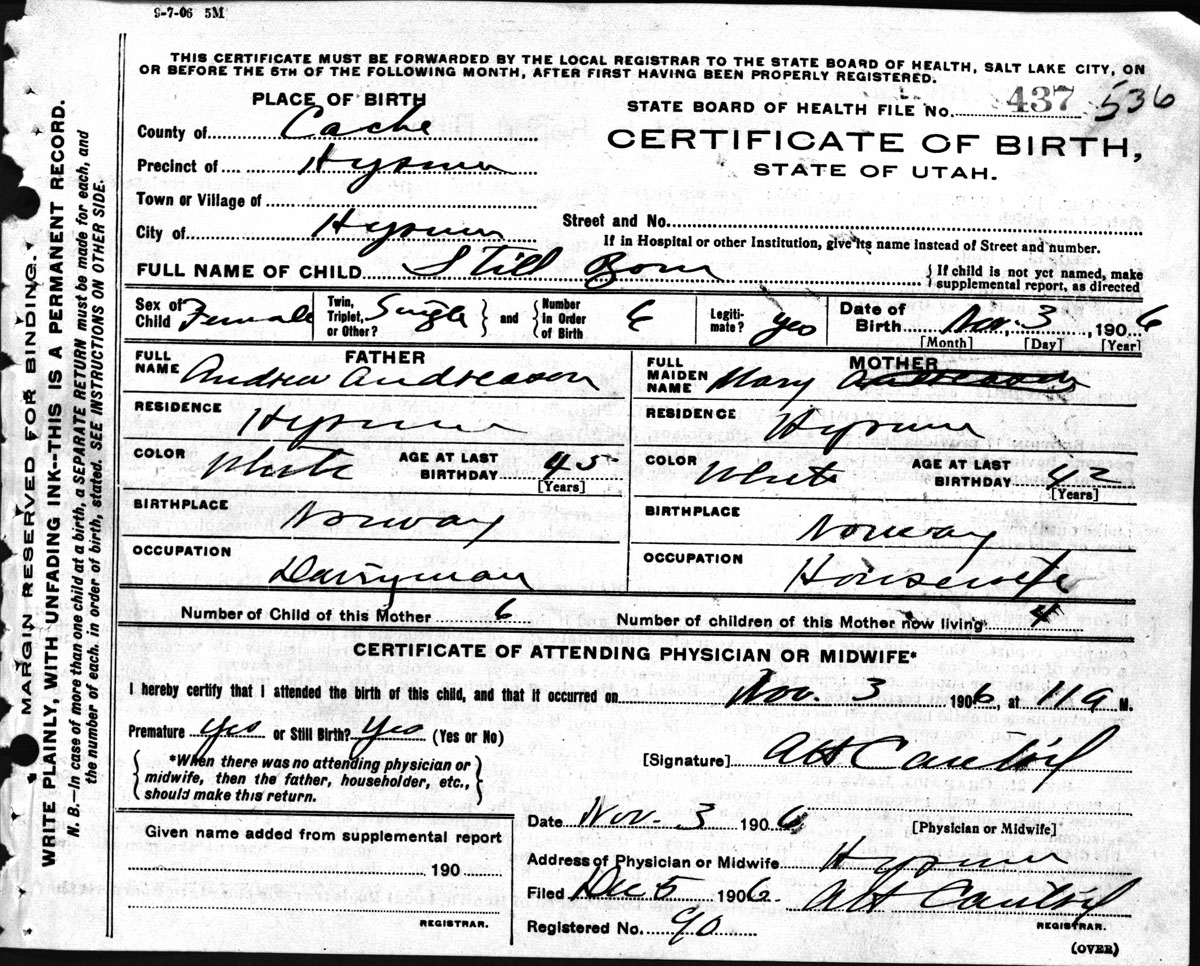 9-7-06 5M
THIS CERTIFICATE MUST BE FORWARDED BY THE LOCAL REGISTRAR TO THE STATE BOARD OF HEALTH, SALT LAKE CITY, ON
OR BEFORE THE 5TH OF THE FOLLOWING MONTH, AFTER FIRST HAVING BEEN PROPERLY REGISTERED.
PLACE OF BIRTH
STATE BOARD OF HEALTH FILE NO. 437 536
County of Cache
CERTIFICATE OF BIRTH,
STATE OF UTAH.
Precinct of Hyrum
Town or Village of
City of Hyrum
Street and No.
If in Hospital or other Institution, give its name instead of Street and number.
FULL NAME OF CHILD Still Born
{ If child is not yet named, make
supplemental report, as directed
Sex of Child Female
Twin, Triplet, or Other? Single } and { Number In Order of Birth 6
Legiti-mate? Yes
Date of Birth Nov. 3, 1906
[Month] [Day] [Year]
FATHER
FULL NAME Andrew Andreason
RESIDENCE Hyrum
COLOR White AGE AT LAST BIRTHDAY 45
[Years]
BIRTHPLACE Norway
OCCUPATION Dairyman
MOTHER
FULL MAIDEN NAME Mary Andreason
RESIDENCE Hyrum
COLOR White AGE AT LAST BIRTHDAY 42
[Years]
BIRTHPLACE Norway
OCCUPATION Housewife
Number of Child of this Mother 6 Number of children of this Mother now living 4
CERTIFICATE OF ATTENDING PHYSICIAN OR MIDWIFE*
I hereby certify that I attended the birth of this child, and that it occurred on Nov. 3 1906, at 11 a M.
Premature Yes or Still Birth? Yes (Yes or No)
{ *When there was no attending physician or
midwife, then the father, householder, etc.,
should make this return. }
[Signature]
Given name added from supplemental report
190
REGISTRAR.
Date Nov. 3 1906
[Physician or Midwife]
Address of Physician or Midwife Hyrum
Filed Dec 5 1906
REGISTRAR.
Registered No. 90
(OVER)
MARGIN RESERVED FOR BINDING.
WRITE PLAINLY, WITH UNFADING INK--THIS IS A PERMANENT RECORD.
N. B.—In case of more than one child at a birth, a SEPARATE RETURN must be made for each, and
the number of each, in order of birth, stated. SEE INSTRUCTIONS ON OTHER SIDE.